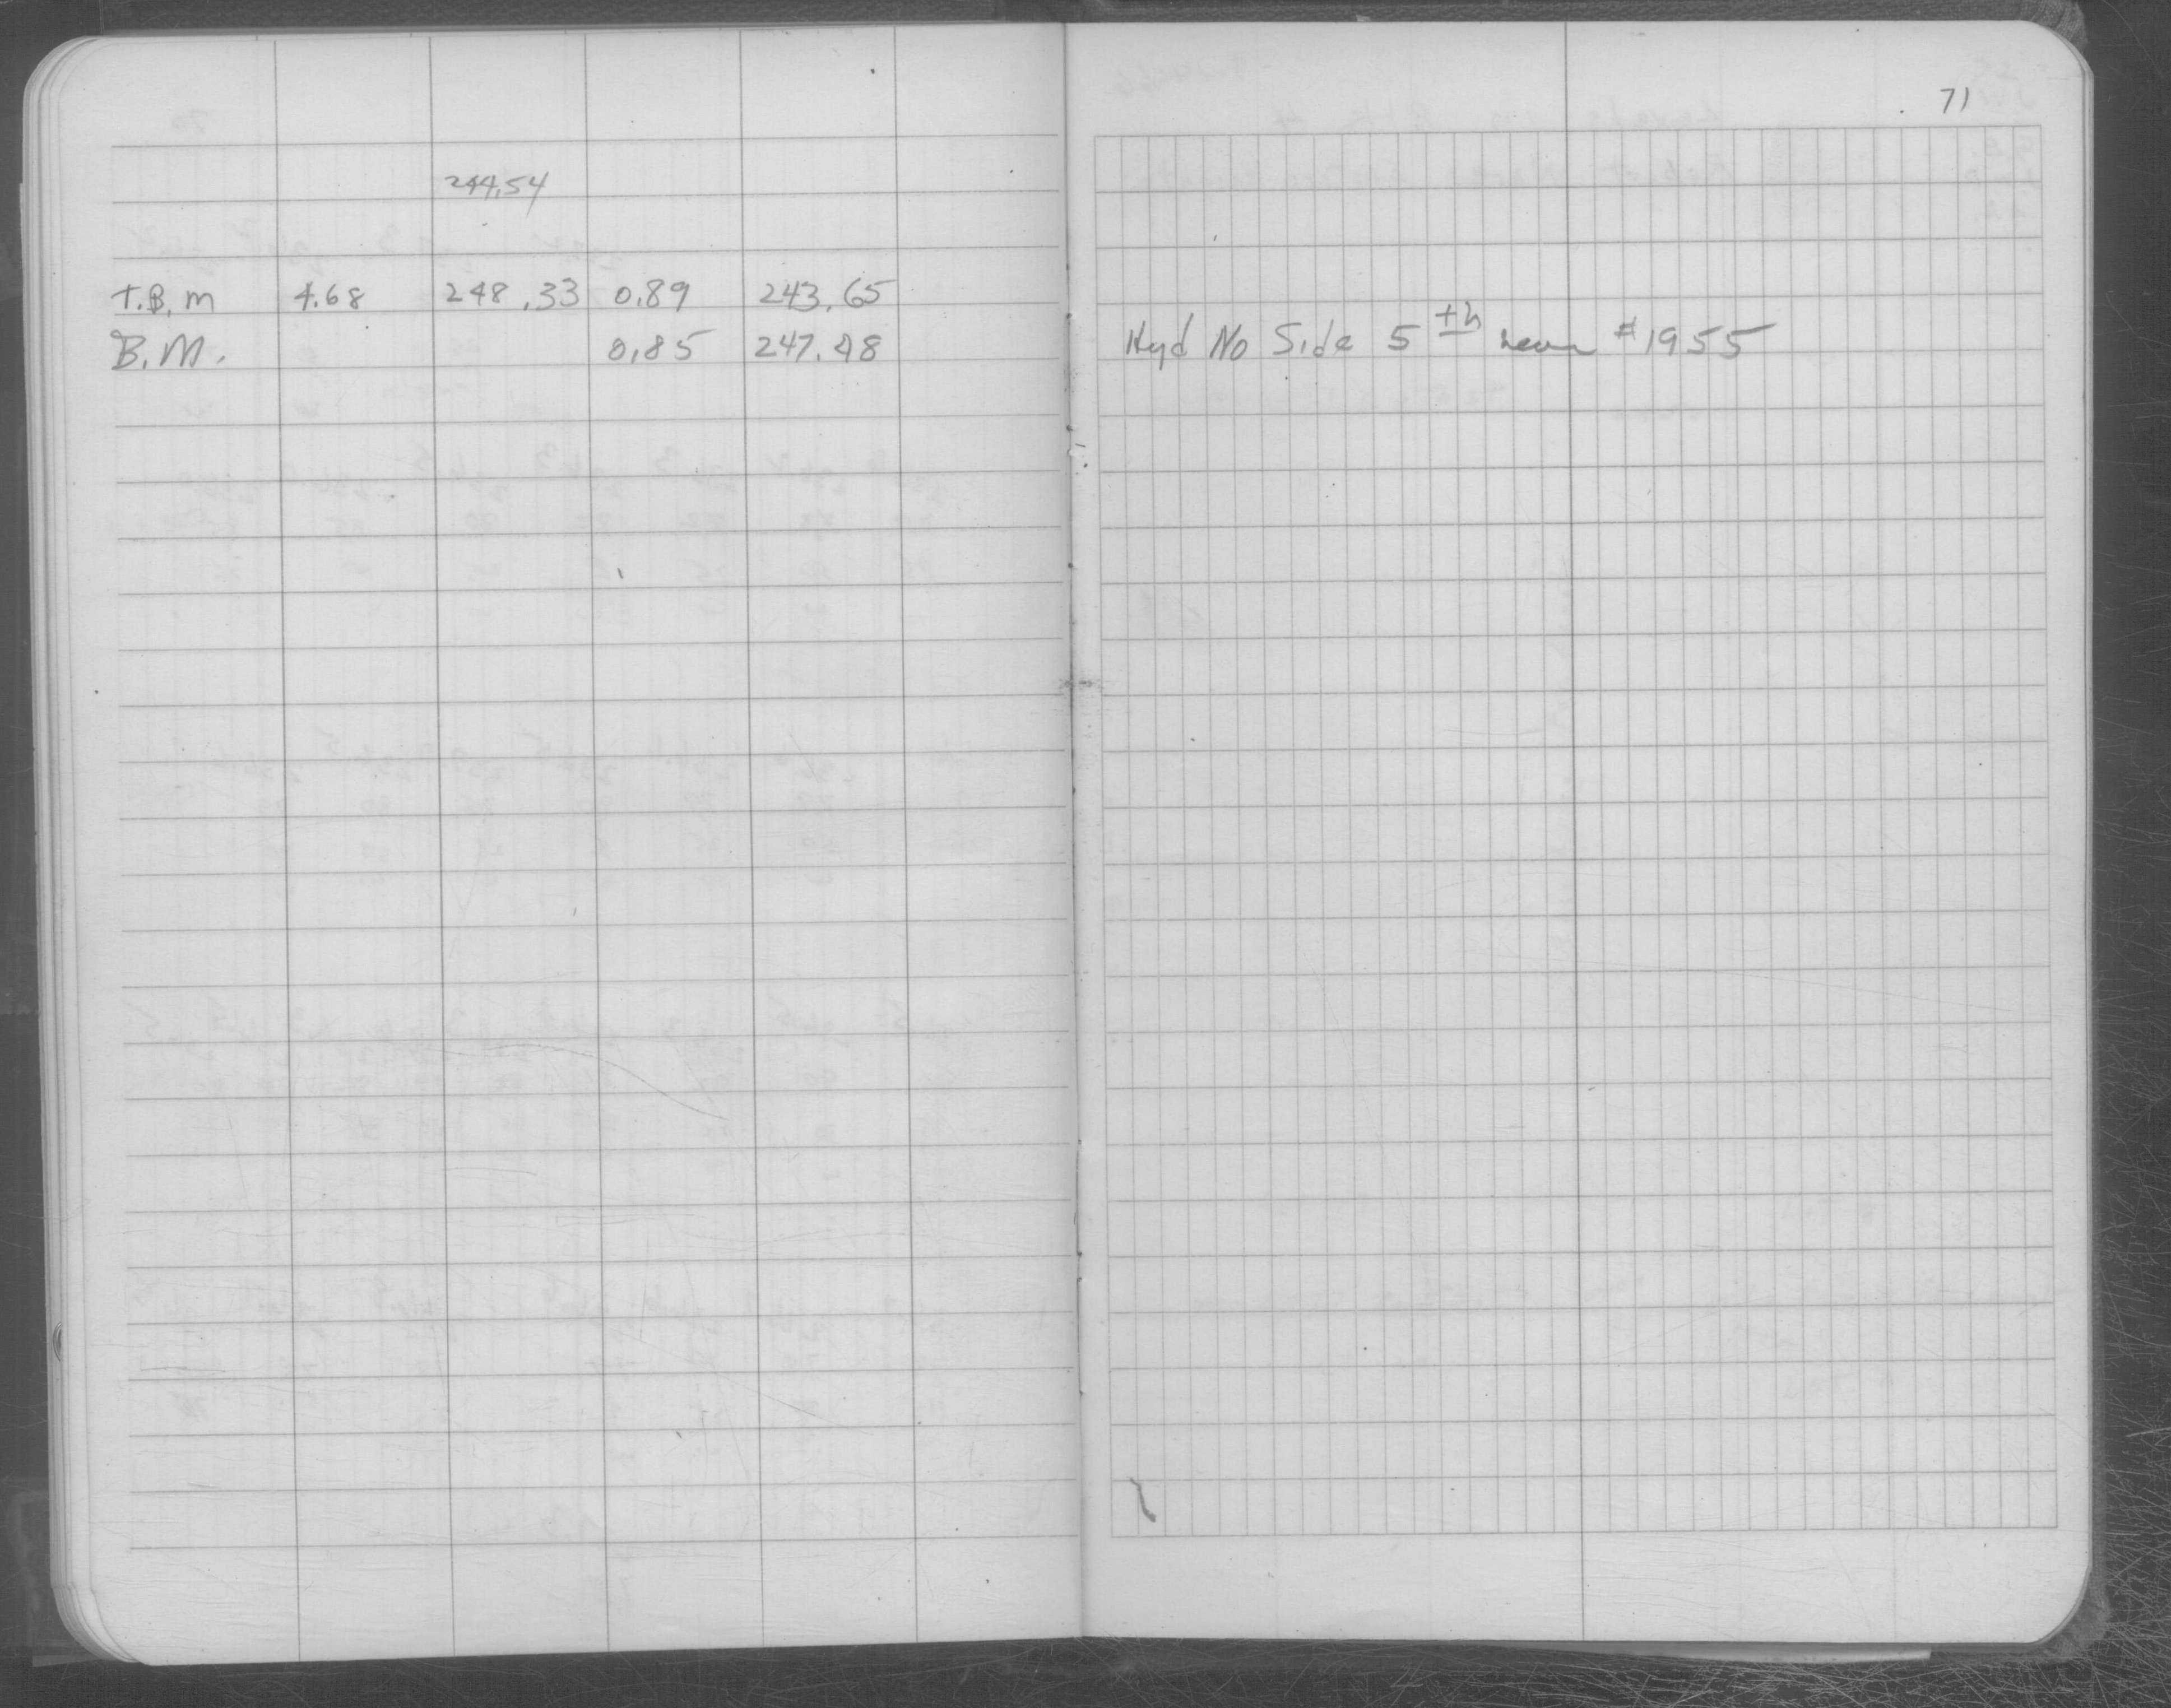 71
244.54
T.B.M 4.68 248.33 0.89 243.65
B.M. 0.85 247.48 Hyd No Side 5th near #1955